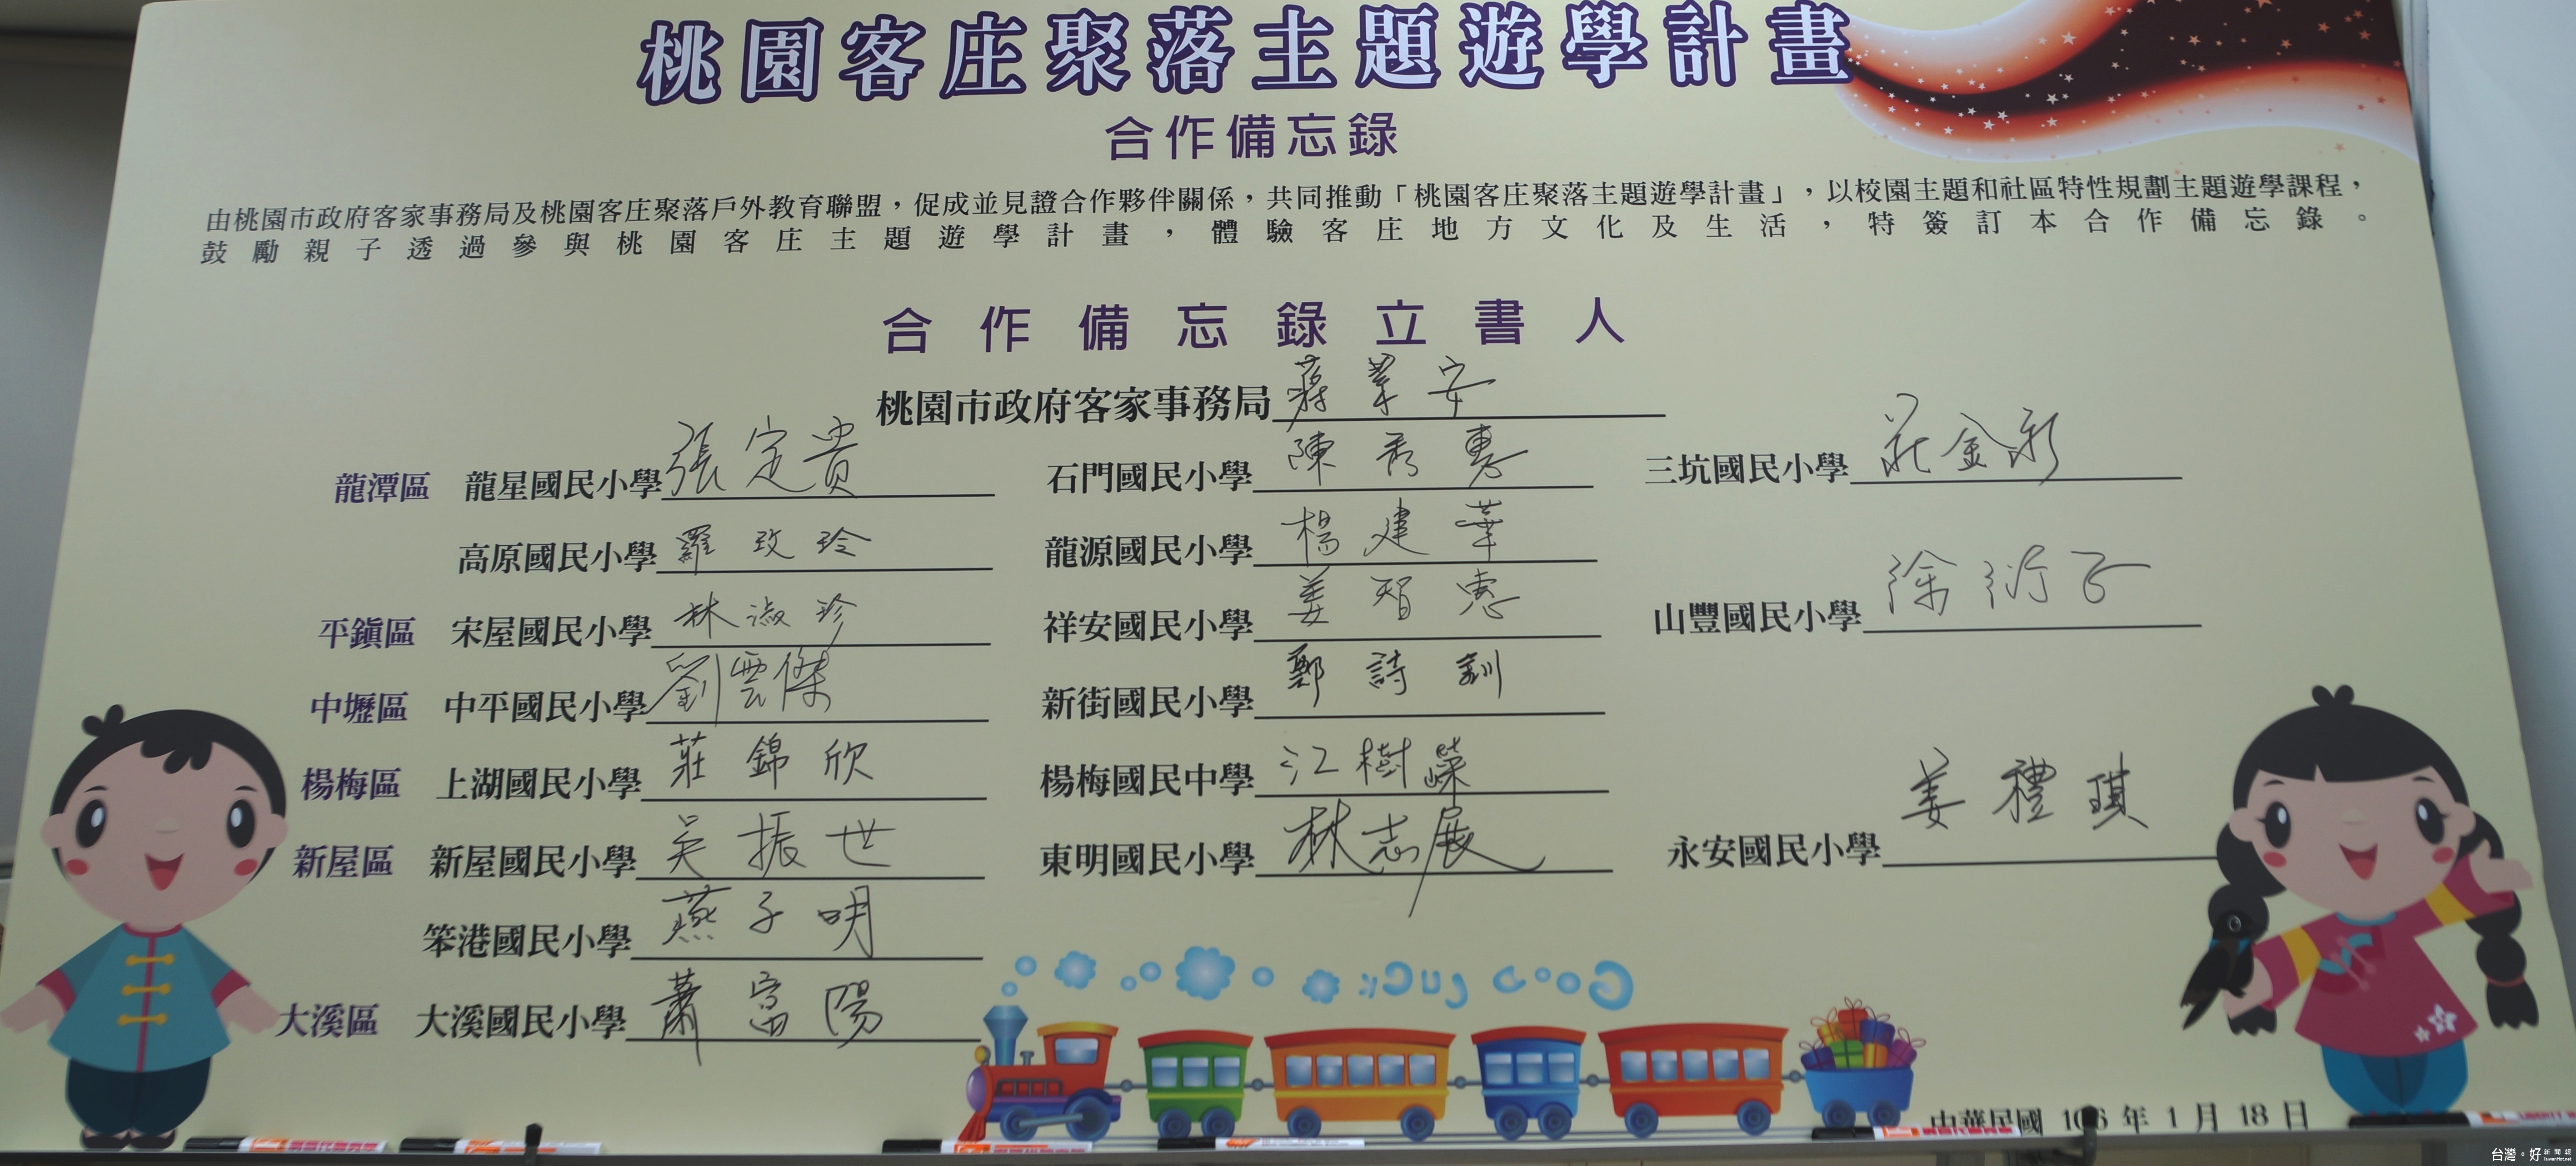 桃園客庄聚落主題遊學計畫
合作備忘錄
由桃園市政府客家事務局及桃園客庄聚落戶外教育聯盟，促成並見證合作夥伴關係，共同推動「桃園客庄聚落主題遊學計畫」，以校園主題和社區特性規劃主題遊學課程，
鼓勵親子透過參與桃園客庄主題遊學計畫，體驗客庄地方文化及生活，特簽訂本合作備忘錄。
合作備忘錄立書人
桃園市政府客家事務局 蔣絜安
龍潭區 龍星國民小學 張定貴 石門國民小學 陳秀惠 三坑國民小學 莊金彩
高原國民小學 羅玫玲 龍源國民小學 楊建華
平鎮區 宋屋國民小學 林淑珍 祥安國民小學 姜智惠 山豐國民小學 徐衍子
中壢區 中平國民小學 劉雲傑 新街國民小學 鄭詩釧
楊梅區 上湖國民小學 莊錦欣 楊梅國民中學 江樹嶸
新屋區 新屋國民小學 吳振世 東明國民小學 林志展 永安國民小學 姜禮琪
笨港國民小學 燕子明
大溪區 大溪國民小學 蕭富陽
Good Luck
中華民國 106 年 1 月 18 日
台灣。好新聞報
TaiwanHot.net